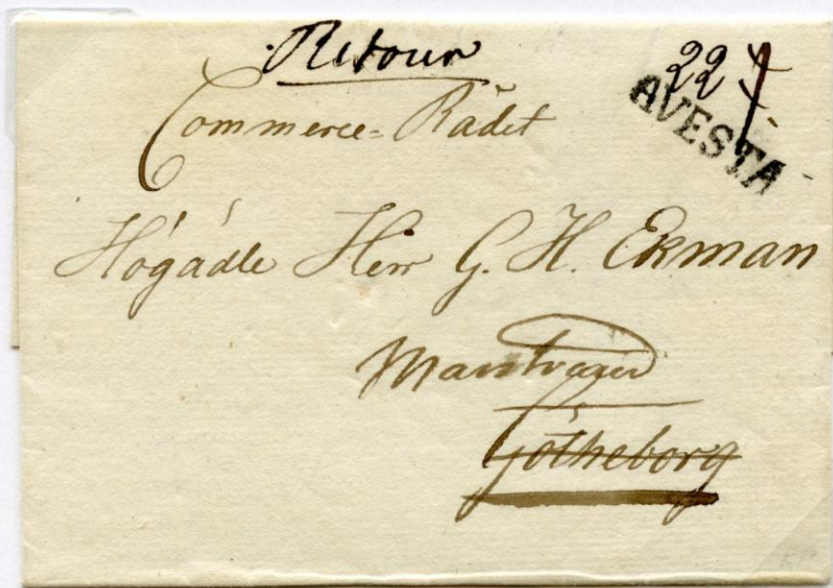 Retour
22
AVESTA
Commerce-Rådet
Högädle Herr G. H. Ekman
Götheborg